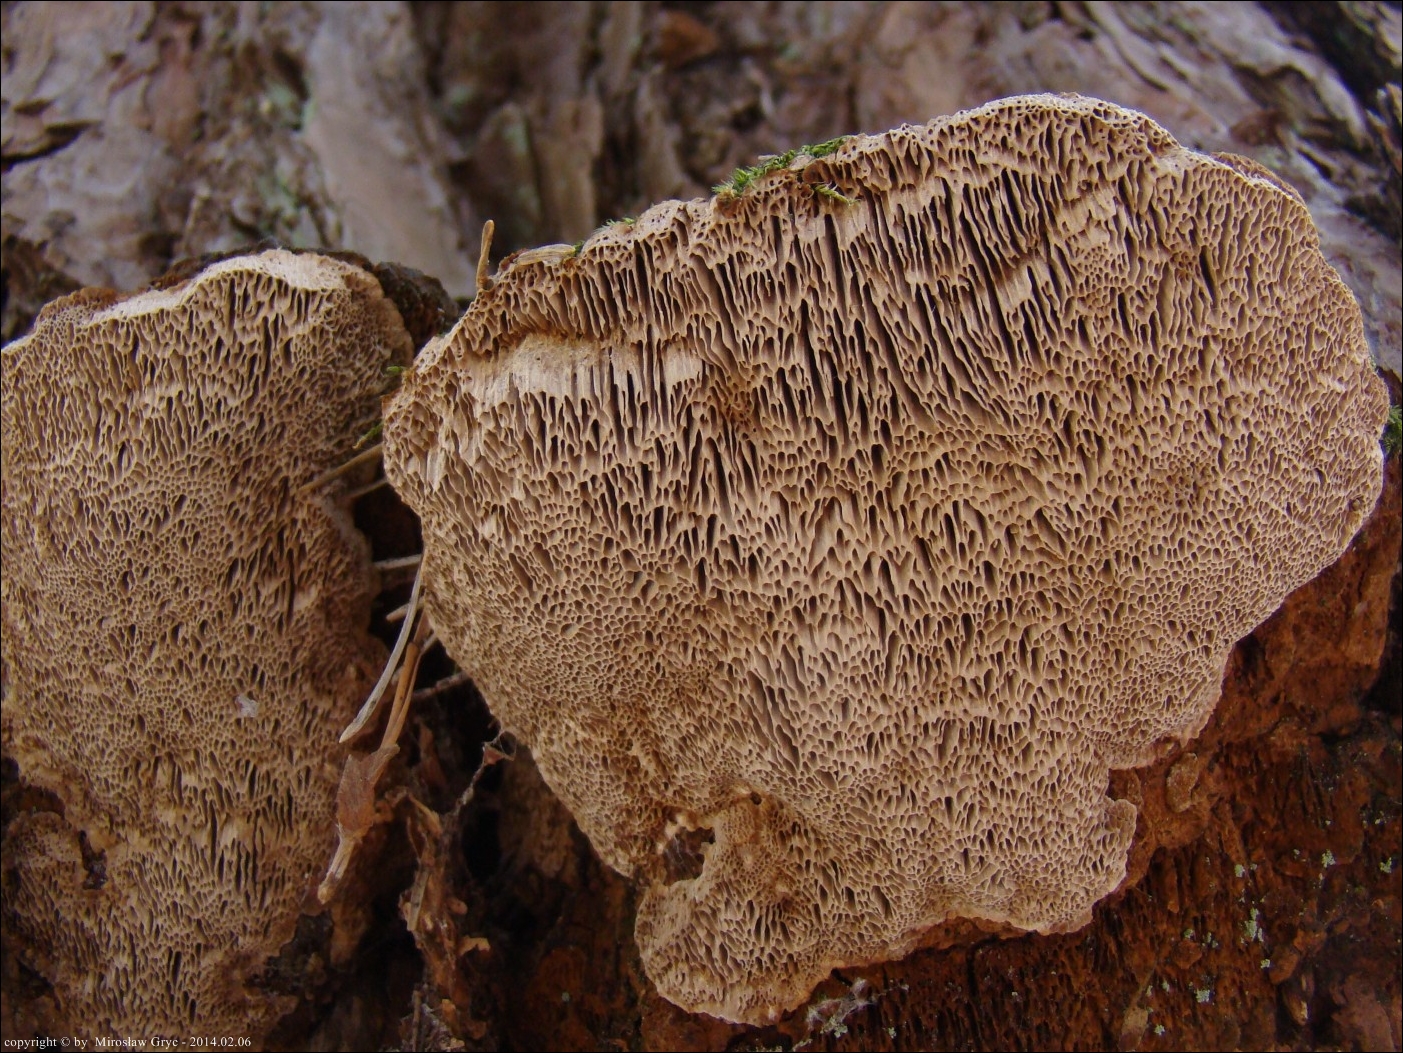 copyright © by Mirosław Gryc - 2014.02.06